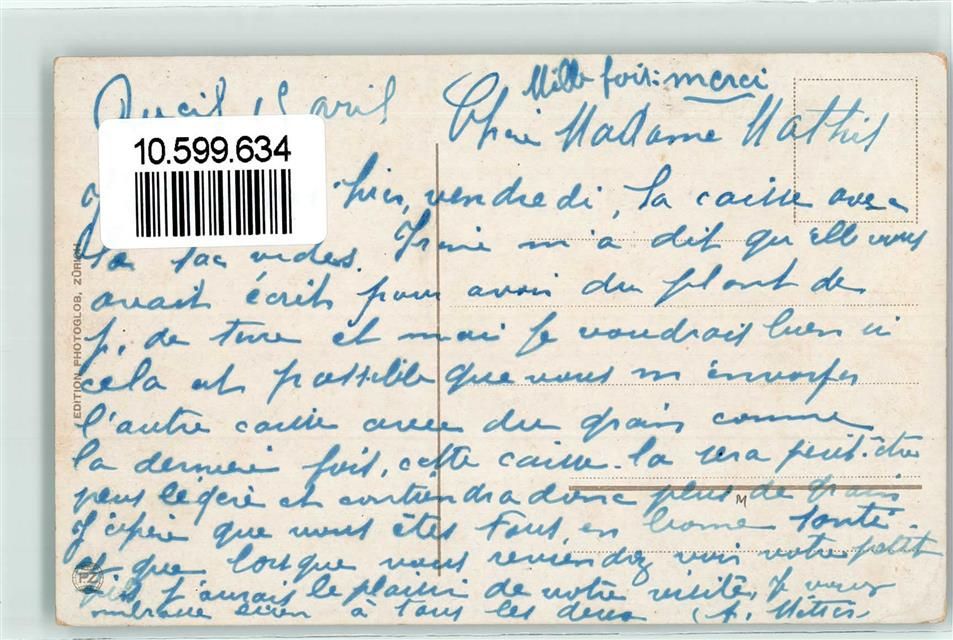 Mille fois: merci
avril
Chère Madame Mathis
10.599.634
hier, vendredi, la caisse avec
sac vides. m'a dit qu'elle vous
avait écrit pour avoir du plant de
p. de terre et moi je voudrais bien si
cela est possible que vous m'envoyez
l'autre caisse avec du grain comme
la dernière fois, cette caisse-la sera peut-être
plus légère et contiendra donc plus de grain
J'espère que vous êtes Tous, en bonne santé.
et que lorsque vous reviendrez voir votre petit
fils j'aurais le plaisir de votre visite, Je vous
embrasse à tous les deux
EDITION PHOTOGLOB, ZÜRICH
M
PZ